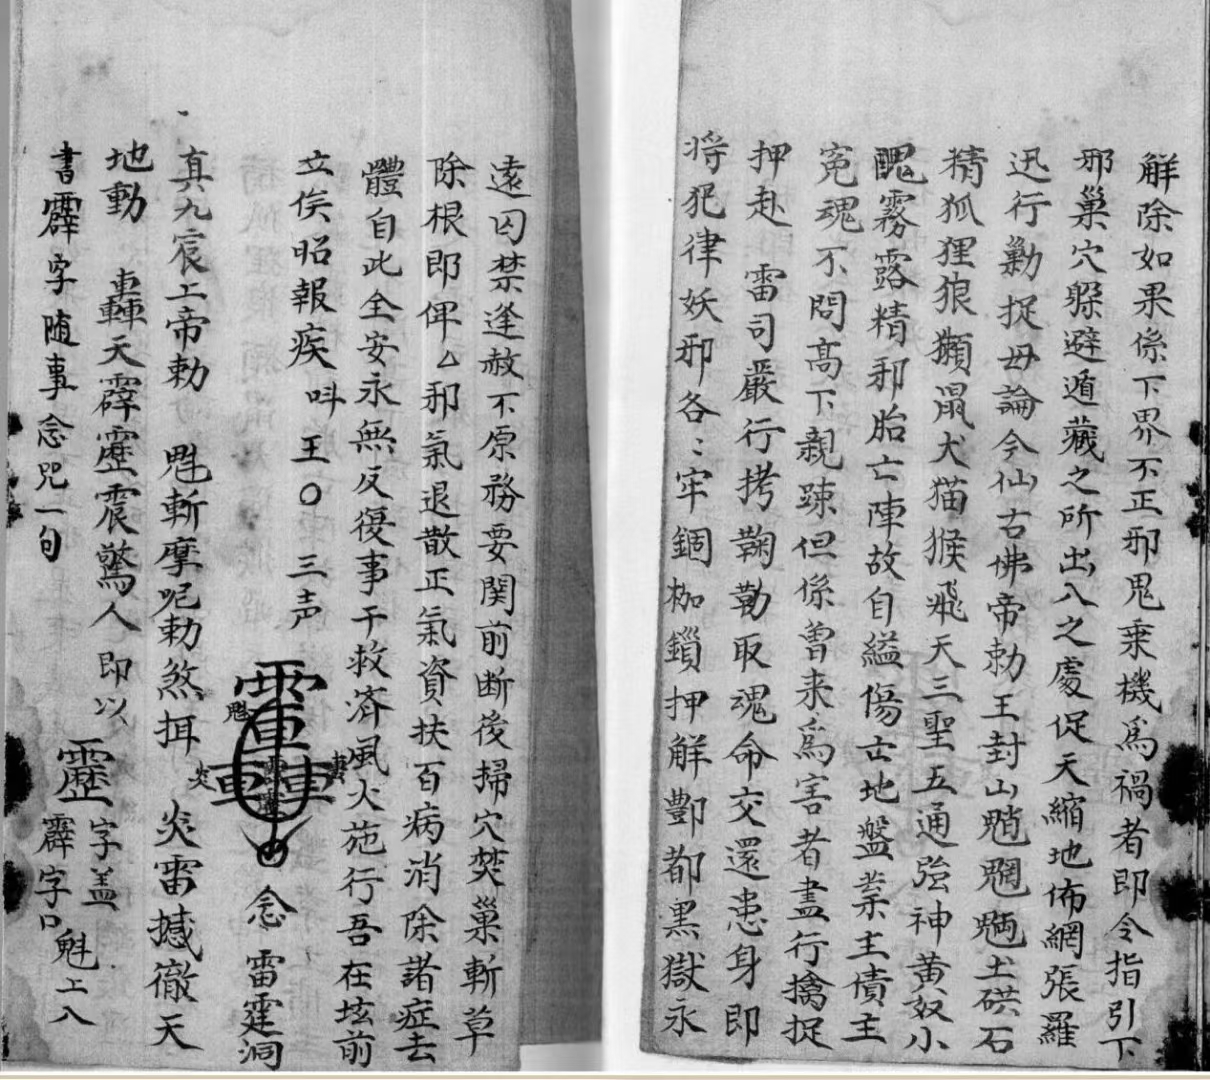 解除如果係下界不正邪鬼乗機為禍者即令指引下
邪巢穴躱避遁藏之所出入之處促天縮地佈網張羅
迅行勦捉毋論今仙古佛帝勅王封山魈魍魎土硔石
精狐狸狼獺鼠犬猫猴飛天三聖五通強神黃奴小
醜霧露精邪胎亡陣故自縊傷亡地盤業主債主
冤魂不問高下親踈但係曾来為害者盡行擒捉
押赴 雷司嚴行拷鞠勒取魂命交還患身即
将犯律妖邪各〻牢錮枷鎖押解酆都黑獄永
遠囚禁逢赦不原務要関前断後掃穴焚巢斬草
除根即俾乙邪氣退散正氣資扶百病消除諸症去
體自此全安永無反復事干救济風火施行吾在垓前
立俟昭報疾 呌 王〇 三声
念 雷霆洞
真九宸上帝勅 斬摩呢勅煞挕 炎雷撼徹天
地動 轟天霹靂震驚人 即以 靂 字盖 魁上八
書霹字随事念咒一句 霹字口